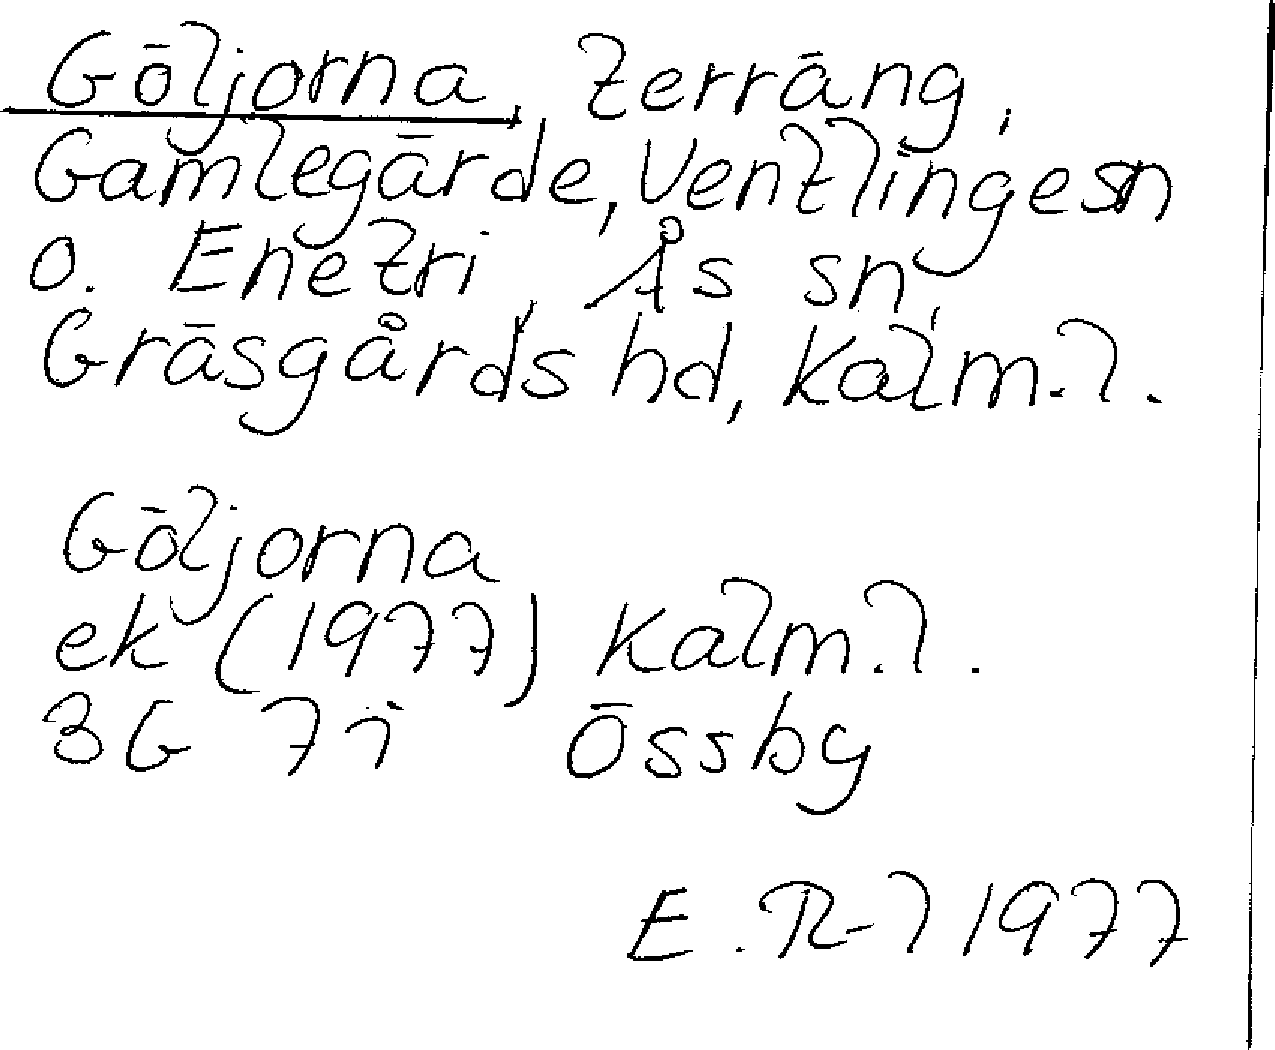 Göljorna, terräng,
Gamlegärde, Ventlinge sn
o. Enetri, Ås sn,
Gräsgårds hd, Kalm. l.
Göljorna
ek (1977) Kalm. l.
3G 7i Össby
E. R-l 1977